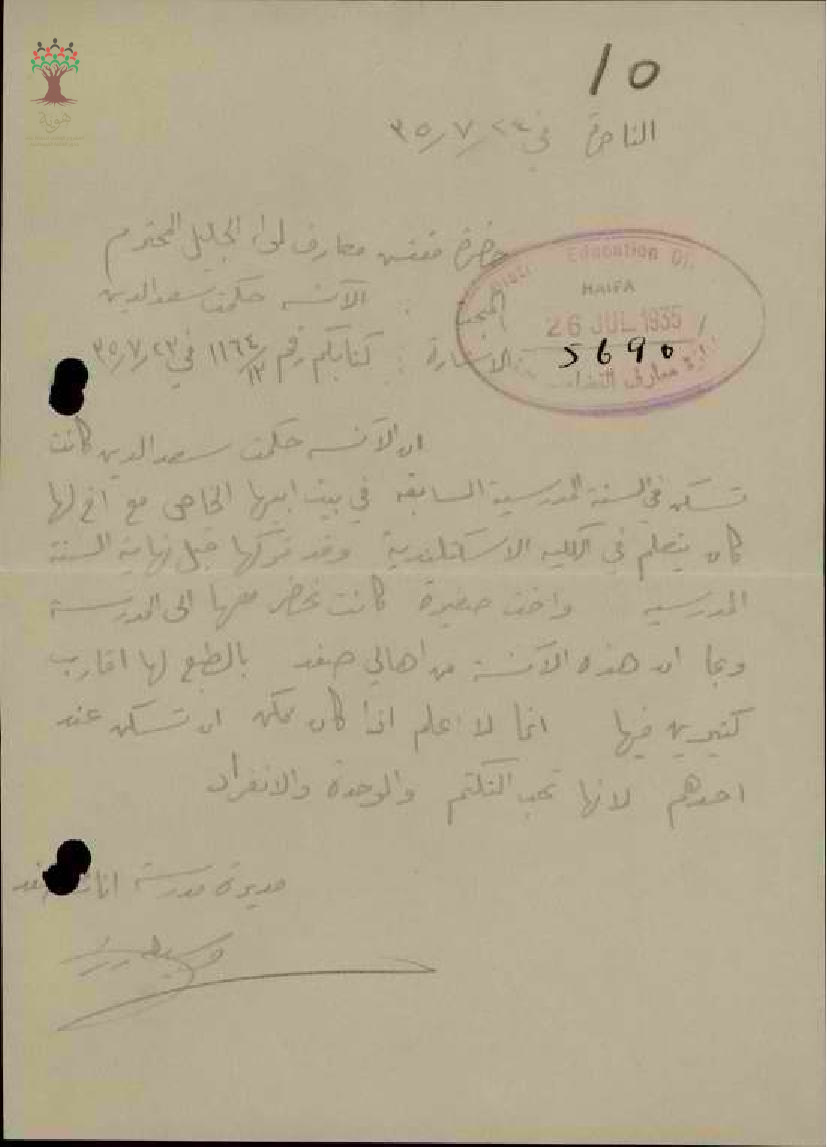 10
الناصرة في ٢٤/٧/٣٥
حضرة مفتش معارف لواء الجليل المحترم
Education Of
HAIFA
26 JUL 1935
5690
المبحث : الآنسه حكمت سعد الدين
الاشارة : كتابكم رقم ١١٦٤/١٢ في ٢٣/٧/٣٥
ان الآنسه حكمت سعد الدين كانت
تسكن في السنة المدرسية السابقه في بيت ابيها الخاص مع اخ لها
كان يتعلم في الكليه الاسكتلندية وقد تركها قبل نهاية السنة
المدرسيه واخت صغيرة كانت تحضر معها الى المدرسة
وبما ان هذه الآنسة من اهالي صفد بالطبع لها اقارب
كثيرين فيها انما لا اعلم اذا كان يمكن ان تسكن عند
احدهم لانها تحب التكتم والوحدة والانفراد
مديرة مدرسة اناث صفد
هوية